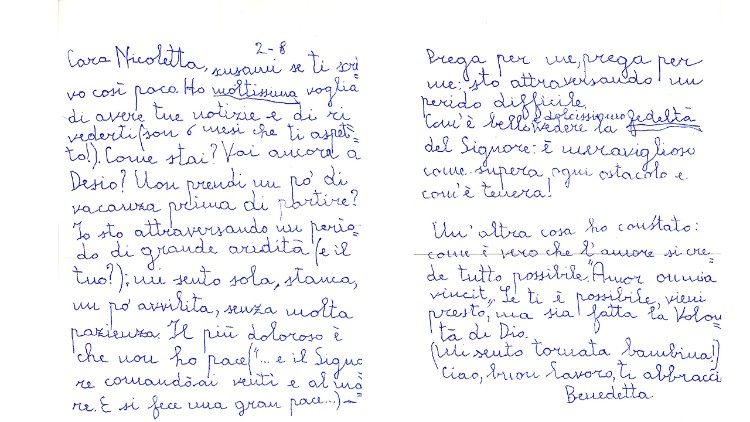 2-8
Cara Nicoletta, scusami se ti scri
vo così poco. Ho moltissima voglia
di avere tue notizie e di ri
vederti (son 6 mesi che ti aspet=
to!). Come stai? Vai ancora a
Desio? Non prendi un po' di
vacanza prima di partire?
Io sto attraversando un perio=
do di grande aridità (e il
tuo?); mi sento sola, stanca,
un po' avvilita, senza molta
pazienza. Il più doloroso è
che non ho pace ("... e il Signo
re comandò ai venti e al ma
re. E si fece una gran pace...) —
Prega per me, prega per
me: sto attraversando un
perido difficile.
Com'è bello vedere la dolcissima fedeltà
del Signore: è meraviglioso
come supera ogni ostacolo e
com'è tenera!
Un'altra cosa ho constato:
come è vero che l'amore si cre=
de tutto possibile. "Amor omnia
vincit". Se ti è possibile, vieni
presto, ma sia fatta la Volon=
tà di Dio.
(Mi sento tornata bambina!)
Ciao, buon lavoro, ti abbraccia
Benedetta